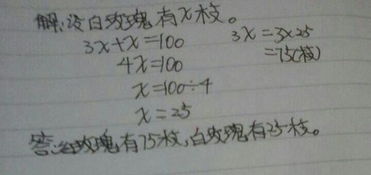 解:设白玫瑰有x枝。
3x+x=100
4x=100
x=100÷4
x=25
3x=3×25
=75(枝)
答:红玫瑰有75枝,白玫瑰有25枝。